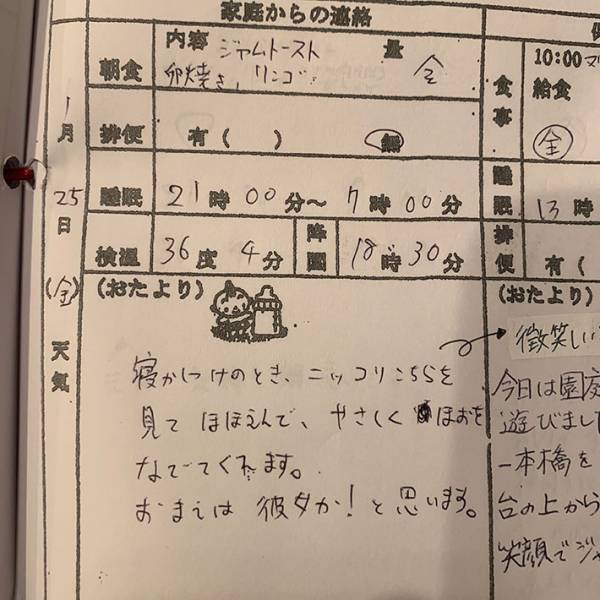 家庭からの連絡
朝食 内容 ジャムトースト 量 全
卵焼き、リンゴ
排便 有( ) 無
睡眠 21時00分〜7時00分
検温 36度4分 降園 18時30分
1月25日(金)天気
(おたより)
寝かしつけのとき、ニッコリこちらを
見て ほほえんで、やさしく ほおを
なでてくれます。
おまえは 彼女か!と思います。
食事 10:00
給食
全
睡眠 13時
排便 有(
(おたより)
微笑しい
今日は園庭
遊びまし
一本橋を
台の上から
笑顔でジャ